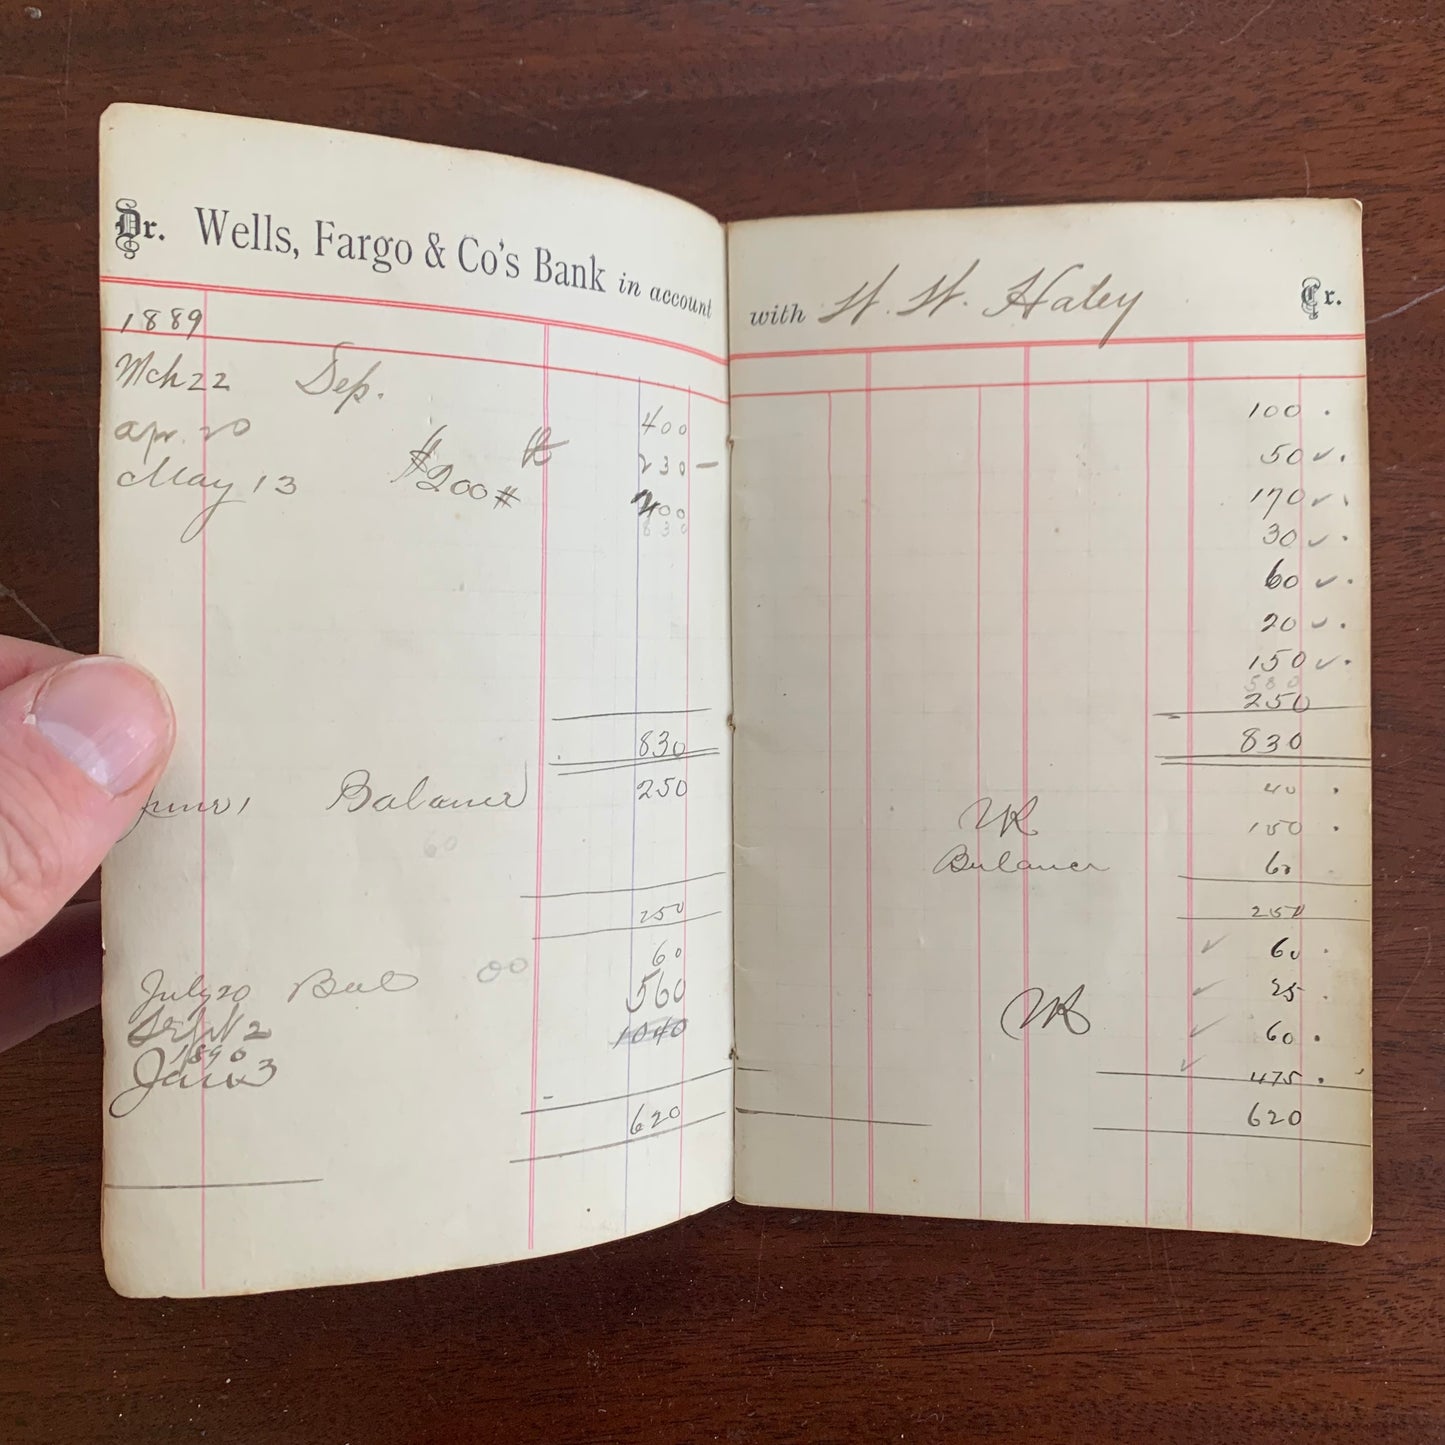 Dr. Wells, Fargo & Co's Bank in account
1889
Mch 22 Dep. 400
apr. 20 230 —
May 13 $200# 200
830
830
Balance 250
60
250
60
July 20 Bal 00 560
Sept 2 1040
1890
Jan 3
620
with W. W. Haley Cr.
100 .
50 ✓ .
170 ✓ .
30 ✓ .
60 ✓ .
20 ✓ .
150 ✓ .
580
250
830
40 .
VR 150 .
Balance 60
250
✓ 60 .
✓ 25 .
VR ✓ 60 .
✓ 475 .
620